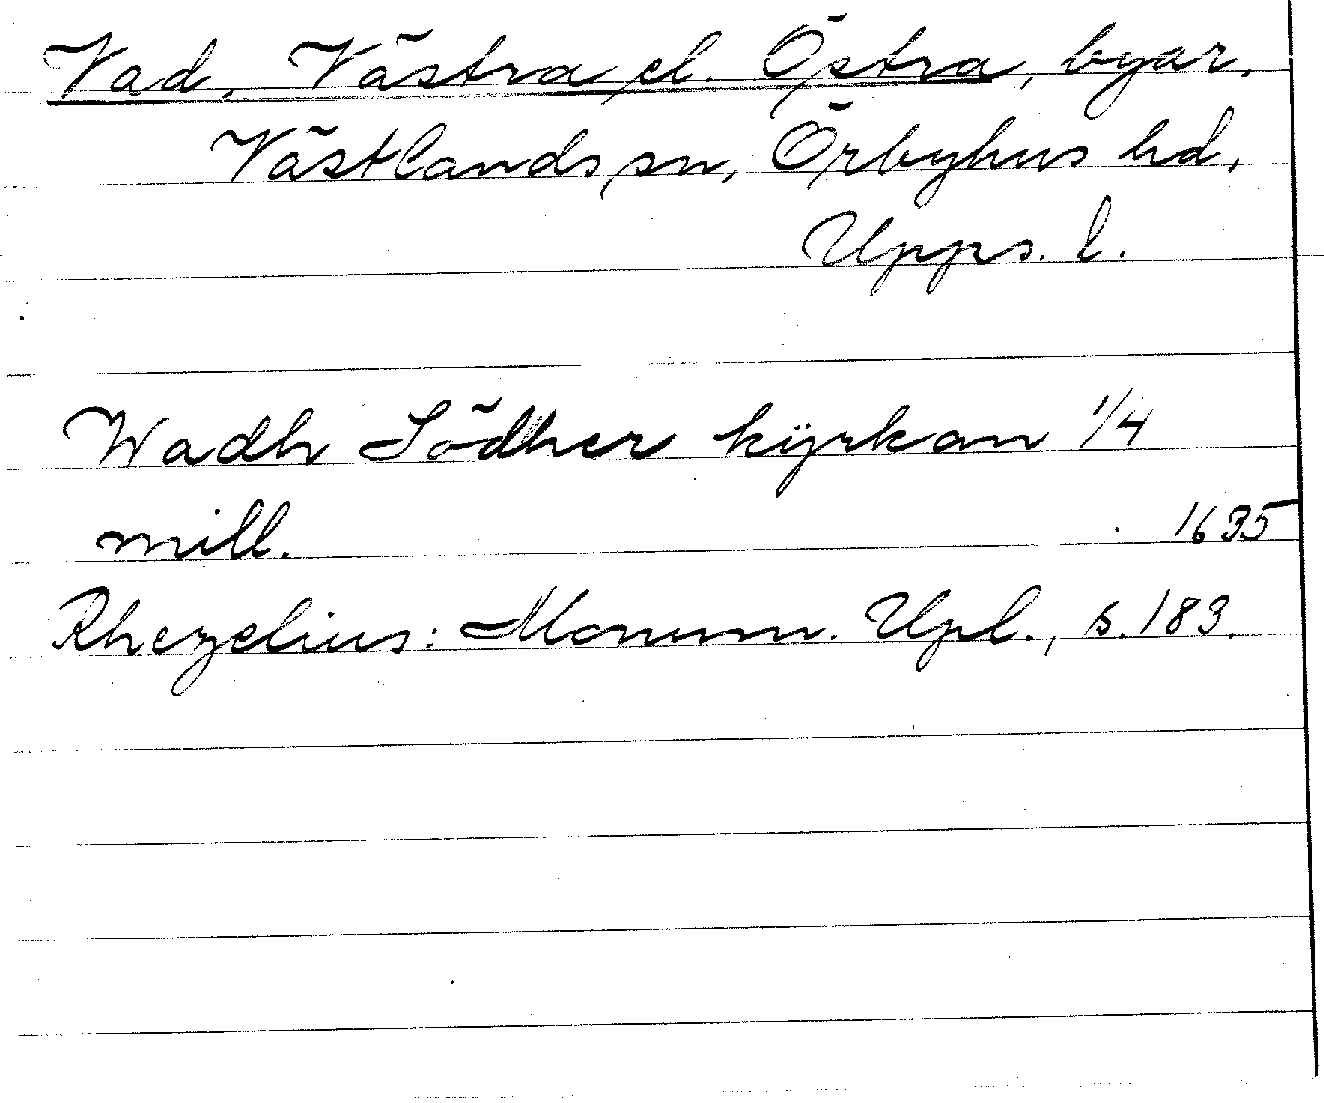 Vad, Västra el. Östra, byar,
Västlands sn, Örbyhus hd,
Upps. l.
Wadh Södher kÿrkan 1/4
mill. 1635
Rhezelius: Monum. Upl., s. 183.